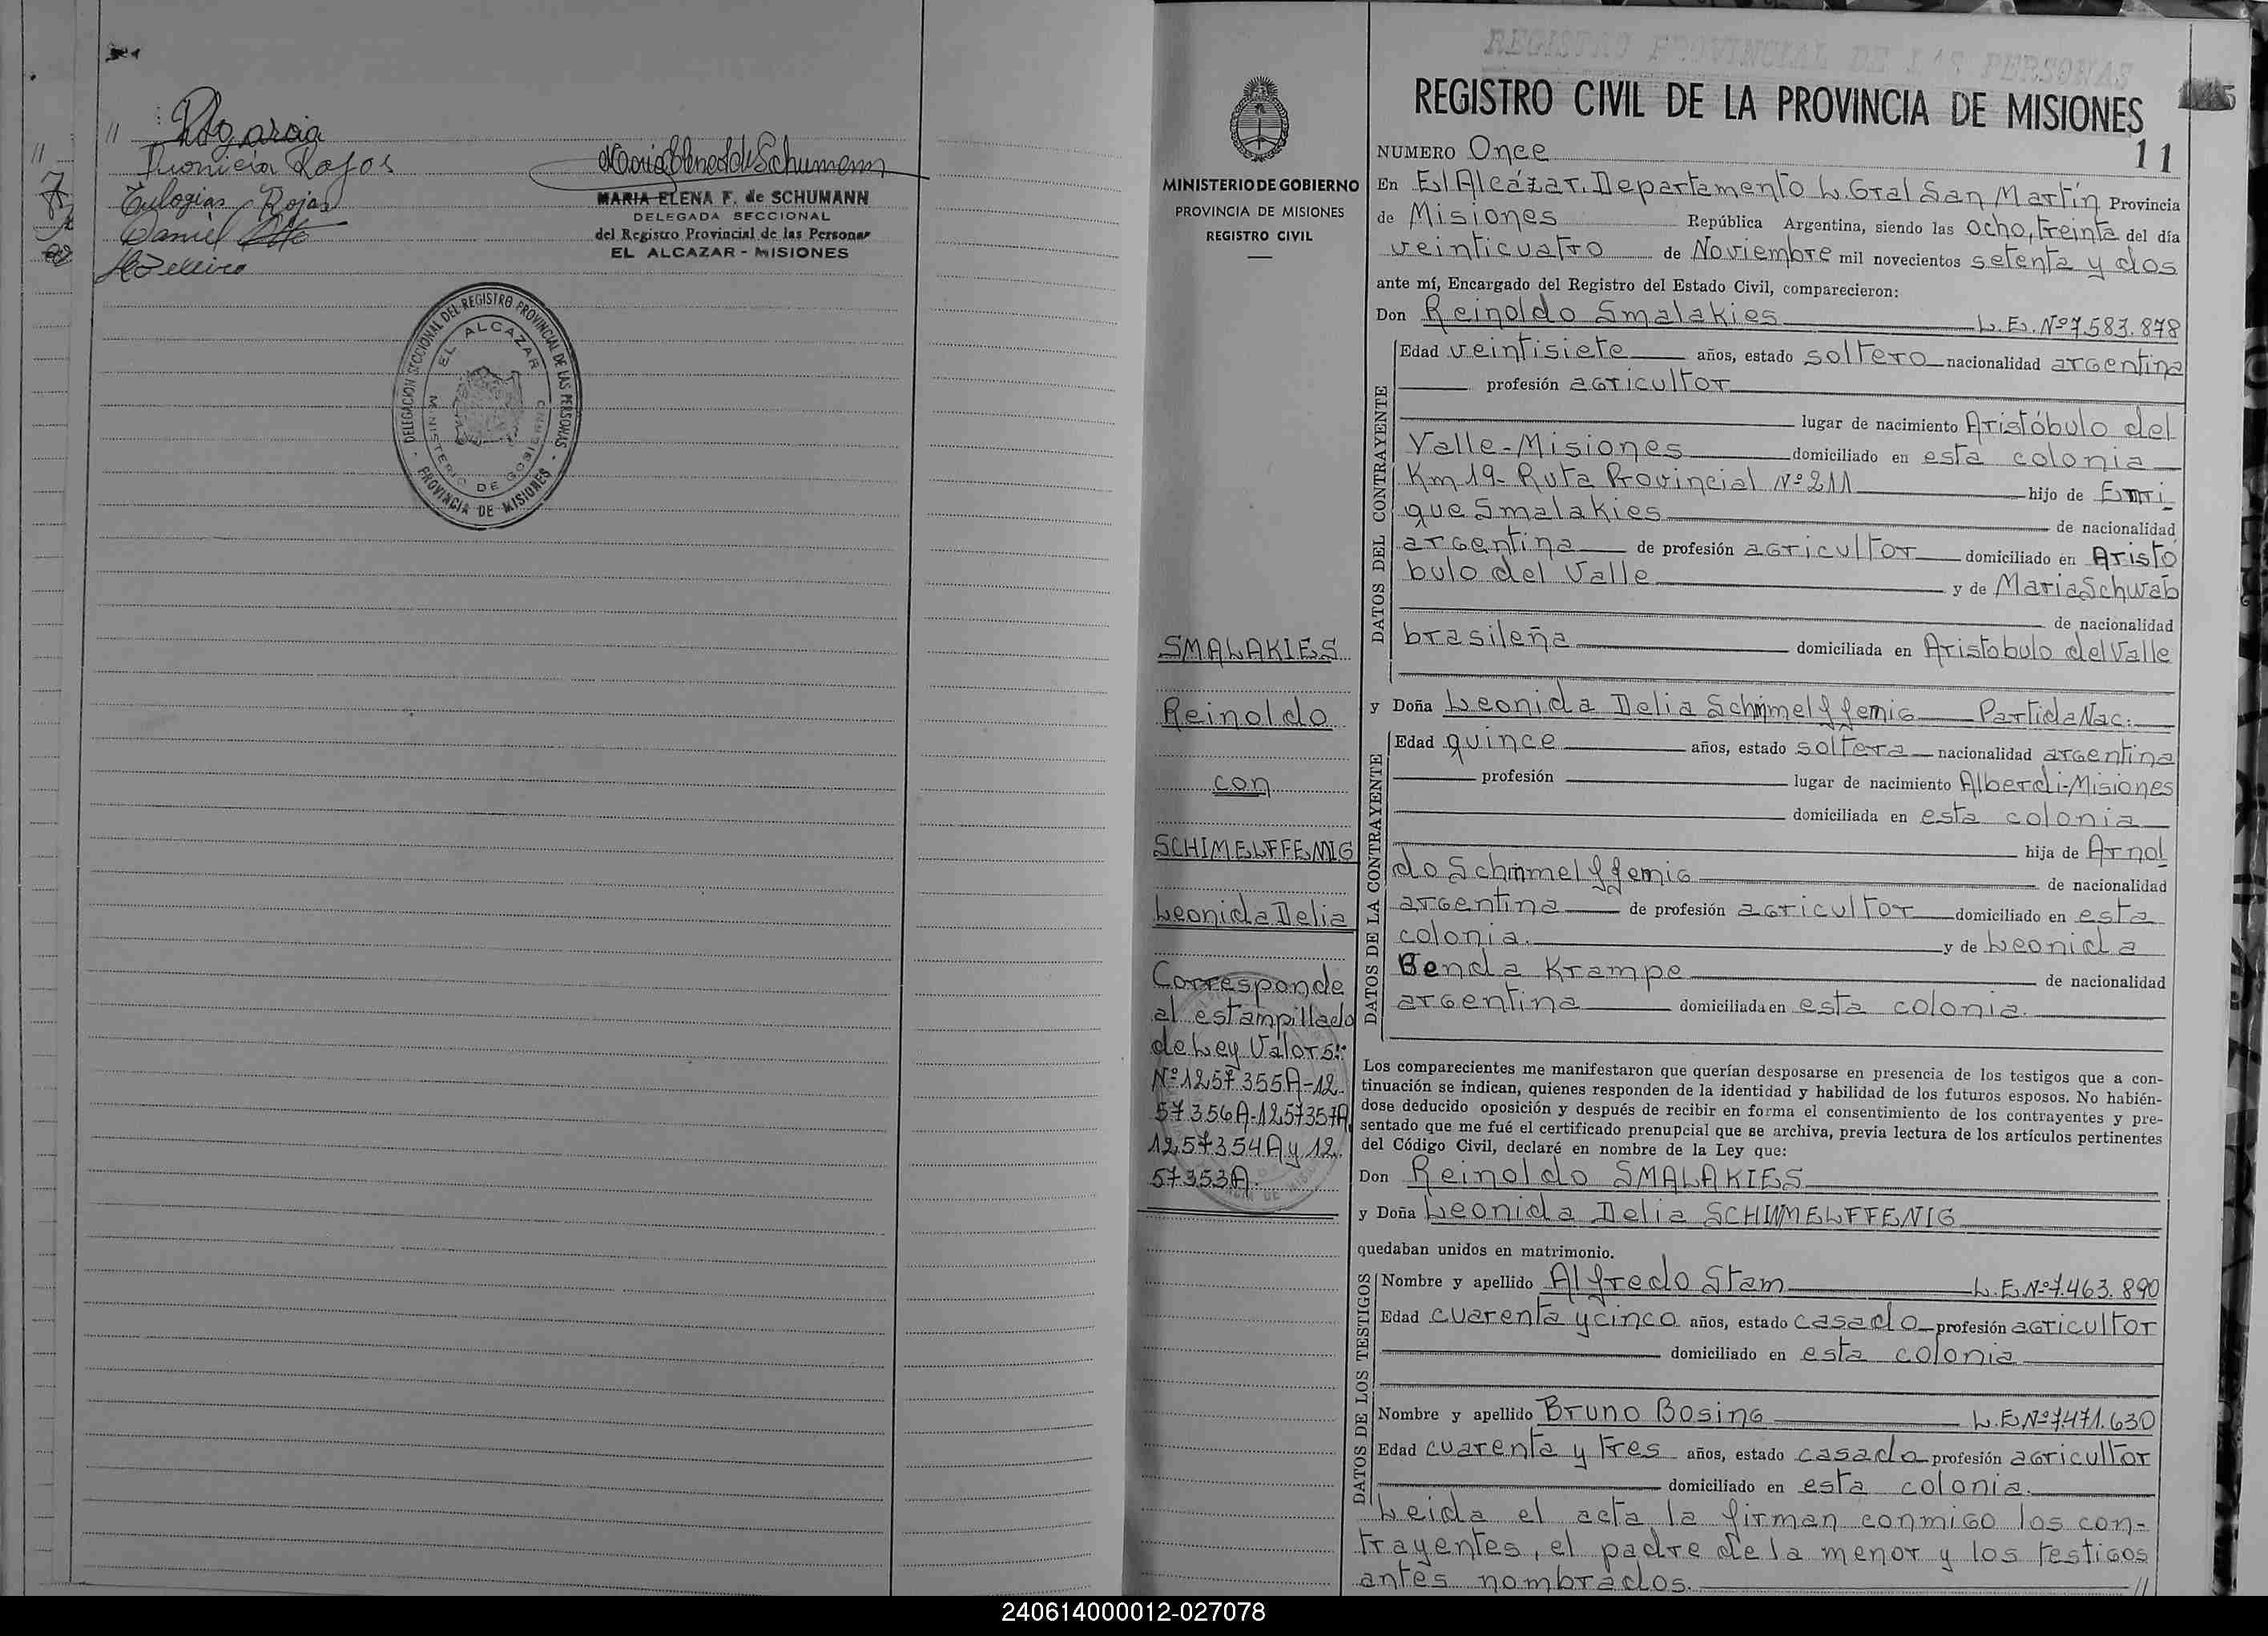 Dionicia Rojas
Eulogias Rojas
Daniel
MARIA ELENA F. de SCHUMANN
DELEGADA SECCIONAL
del Registro Provincial de las Personas
EL ALCAZAR - MISIONES
DELEGACION SECCIONAL DEL REGISTRO PROVINCIAL DE LAS PERSONAS
PROVINCIA DE MISIONES
EL ALCAZAR
MINISTERIO DE GOBIERNO
MINISTERIO DE GOBIERNO
PROVINCIA DE MISIONES
REGISTRO CIVIL
SMALAKIES
Reinoldo
con
SCHIMELFFENIG
Leonida Delia
Corresponde
al estampillado
de Ley Valors:
Nº1257355A-12
57356A-1257357A
1257354A y 12
57353A.
REGISTRO PROVINCIAL DE LAS PERSONAS
REGISTRO CIVIL DE LA PROVINCIA DE MISIONES
NUMERO Once 11
En El Alcázar, Departamento L. Gral San Martín Provincia
de Misiones República Argentina, siendo las ocho, treinta del día
veinticuatro de Noviembre mil novecientos setenta y dos
ante mí, Encargado del Registro del Estado Civil, comparecieron:
Don Reinoldo Smalakies L.E. Nº7.583.878
DATOS DEL CONTRAYENTE
Edad veintisiete años, estado soltero nacionalidad argentina
profesión agricultor
lugar de nacimiento Aristóbulo del
Valle-Misiones domiciliado en esta colonia
Km 19- Ruta Provincial Nº211 hijo de Enri
que Smalakies de nacionalidad
argentina de profesión agricultor domiciliado en Aristó
bulo del Valle y de Maria Schwab
de nacionalidad
brasileña domiciliada en Aristobulo del Valle
y Doña Leonida Delia Schimmelffenig Partida Nac.
DATOS DE LA CONTRAYENTE
Edad quince años, estado soltera nacionalidad argentina
profesión lugar de nacimiento Alberdi-Misiones
domiciliada en esta colonia
hija de Arnol
do Schimmelffenig de nacionalidad
argentina de profesión agricultor domiciliado en esta
colonia. y de Leonida
Benda Krampe de nacionalidad
argentina domiciliada en esta colonia.
Los comparecientes me manifestaron que querían desposarse en presencia de los testigos que a con-
tinuación se indican, quienes responden de la identidad y habilidad de los futuros esposos. No habién-
dose deducido oposición y después de recibir en forma el consentimiento de los contrayentes y pre-
sentado que me fué el certificado prenupcial que se archiva, previa lectura de los artículos pertinentes
del Código Civil, declaré en nombre de la Ley que:
Don Reinoldo SMALAKIES
y Doña Leonida Delia SCHIMMELFFENIG
quedaban unidos en matrimonio.
DATOS DE LOS TESTIGOS
Nombre y apellido Alfredo Stam L.E.Nº7.463.890
Edad cuarenta y cinco años, estado casado profesión agricultor
domiciliado en esta colonia
Nombre y apellido Bruno Bosing L.E.Nº7.471.630
Edad cuarenta y tres años, estado casado profesión agricultor
domiciliado en esta colonia.
Leida el acta la firman conmigo los con-
trayentes, el padre de la menor y los testigos
antes nombrados. //
240614000012-027078